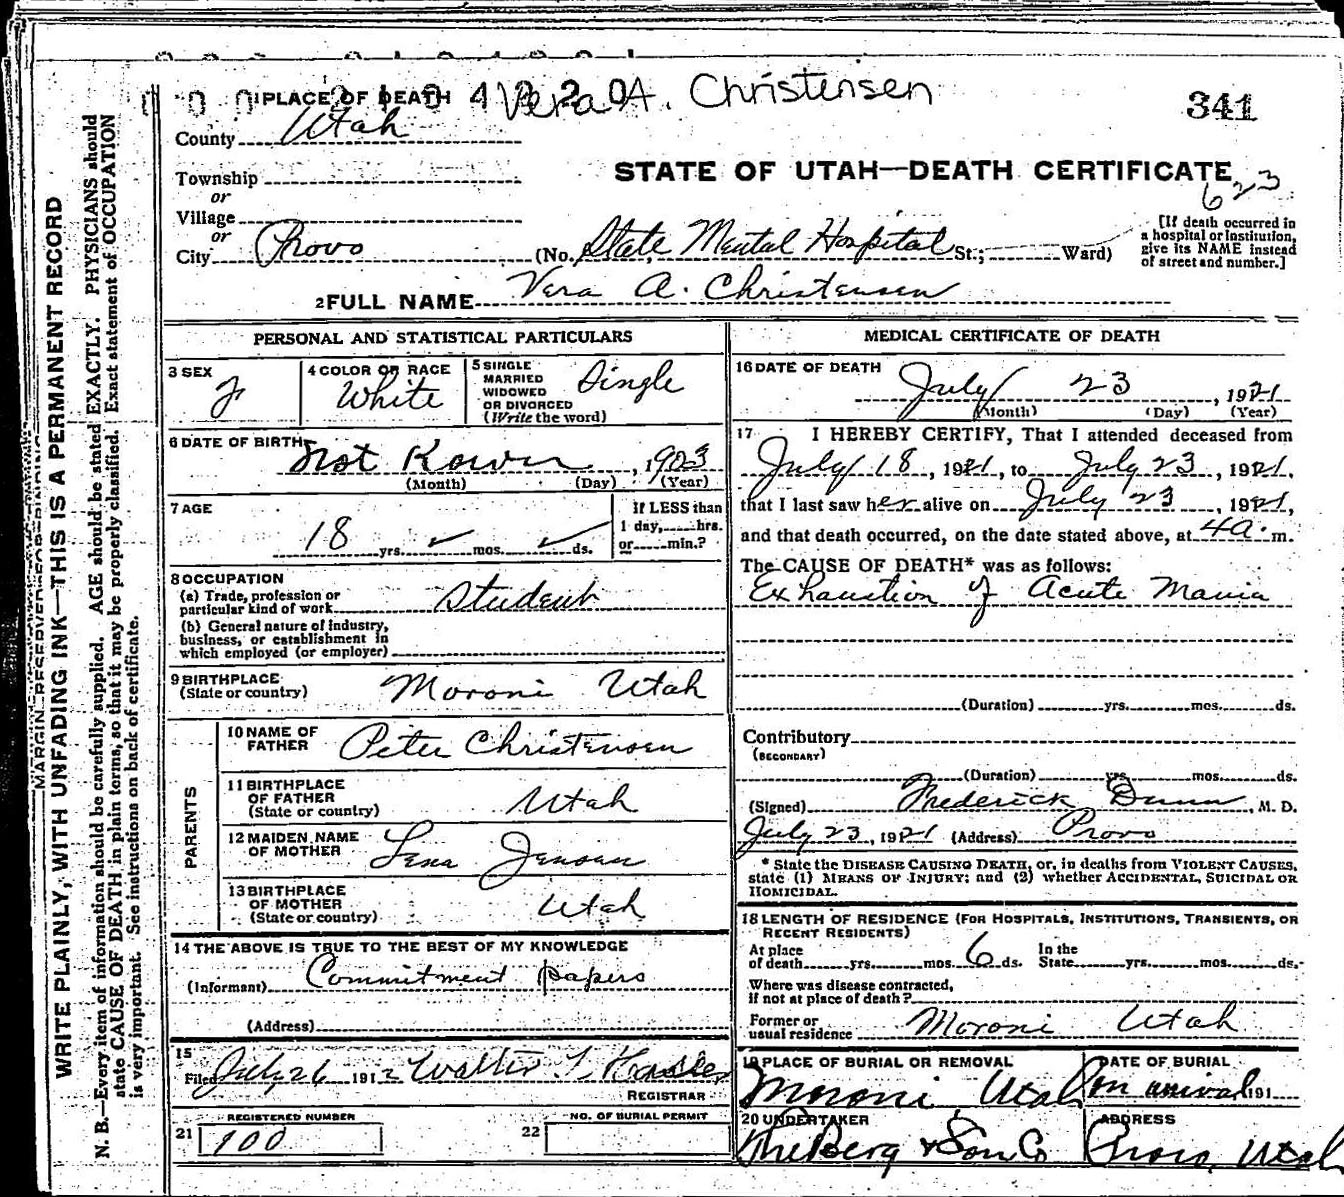 1 PLACE OF DEATH
Vera A. Christensen
341
County Utah
STATE OF UTAH—DEATH CERTIFICATE
623
Township
or
Village
or
City Provo (No. State Mental Hospital St.; Ward)
[If death occurred in
a hospital or institution,
give its NAME instead
of street and number.]
2 FULL NAME Vera A. Christensen
PERSONAL AND STATISTICAL PARTICULARS
3 SEX
F
4 COLOR OR RACE
White
5 SINGLE
MARRIED
WIDOWED
OR DIVORCED
(Write the word)
Single
6 DATE OF BIRTH
Not Kown, 1903
(Month) (Day) (Year)
7 AGE
18 yrs. mos. ds.
If LESS than
1 day, hrs.
or min.?
8 OCCUPATION
(a) Trade, profession or
particular kind of work student
(b) General nature of industry,
business, or establishment in
which employed (or employer)
9 BIRTHPLACE
(State or country) Moroni Utah
PARENTS
10 NAME OF
FATHER Peter Christensen
11 BIRTHPLACE
OF FATHER
(State or country) Utah
12 MAIDEN NAME
OF MOTHER Lena Jensen
13 BIRTHPLACE
OF MOTHER
(State or country) Utah
14 THE ABOVE IS TRUE TO THE BEST OF MY KNOWLEDGE
(Informant) Commitment papers
(Address)
15
Filed July 26 191 Walter T. Hasler
REGISTRAR
REGISTERED NUMBER
21 100
NO. OF BURIAL PERMIT
22
MEDICAL CERTIFICATE OF DEATH
16 DATE OF DEATH
July 23, 1921
(Month) (Day) (Year)
17 I HEREBY CERTIFY, That I attended deceased from
July 18, 1921, to July 23, 1921,
that I last saw her alive on July 23, 1921,
and that death occurred, on the date stated above, at 4 a. m.
The CAUSE OF DEATH* was as follows:
Exhaustion of Acute Mania
(Duration) yrs. mos. ds.
Contributory
(SECONDARY)
(Duration) yrs. mos. ds.
(Signed) Frederick Dunn, M. D.
July 23, 1921 (Address) Provo
* State the DISEASE CAUSING DEATH, or, in deaths from VIOLENT CAUSES,
state (1) MEANS OF INJURY; and (2) whether ACCIDENTAL, SUICIDAL OR
HOMICIDAL.
18 LENGTH OF RESIDENCE (FOR HOSPITALS, INSTITUTIONS, TRANSIENTS, OR
RECENT RESIDENTS)
At place
of death yrs. mos. 6 ds. In the
State yrs. mos. ds.
Where was disease contracted,
if not at place of death?
Former or
usual residence Moroni Utah
19 PLACE OF BURIAL OR REMOVAL
Moroni, Utah
DATE OF BURIAL
on arrival 191
20 UNDERTAKER
The Berg & Son Co
ADDRESS
Provo, Utah
MARGIN RESERVED FOR BINDING
WRITE PLAINLY, WITH UNFADING INK—THIS IS A PERMANENT RECORD
N. B.—Every item of information should be carefully supplied. AGE should be stated EXACTLY. PHYSICIANS should
state CAUSE OF DEATH in plain terms, so that it may be properly classified. Exact statement of OCCUPATION
is very important. See instructions on back of certificate.